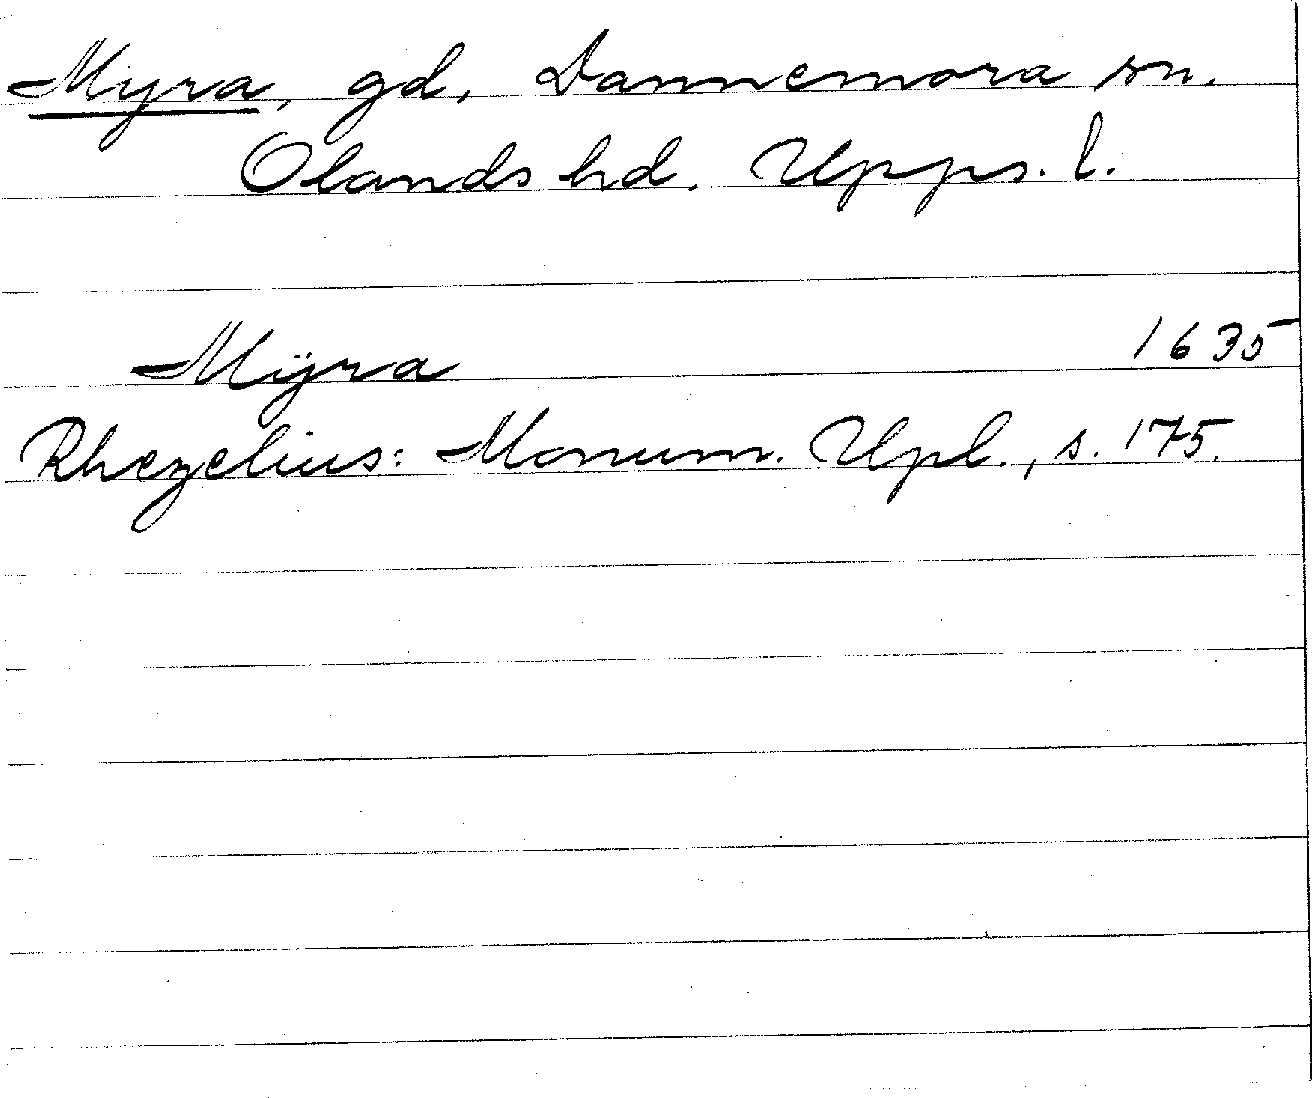 Myra, gd, Dannemora sn.
Olands hd. Upps. l.
Mÿra 1635
Rhezelius: Monum. Upl., s. 175.